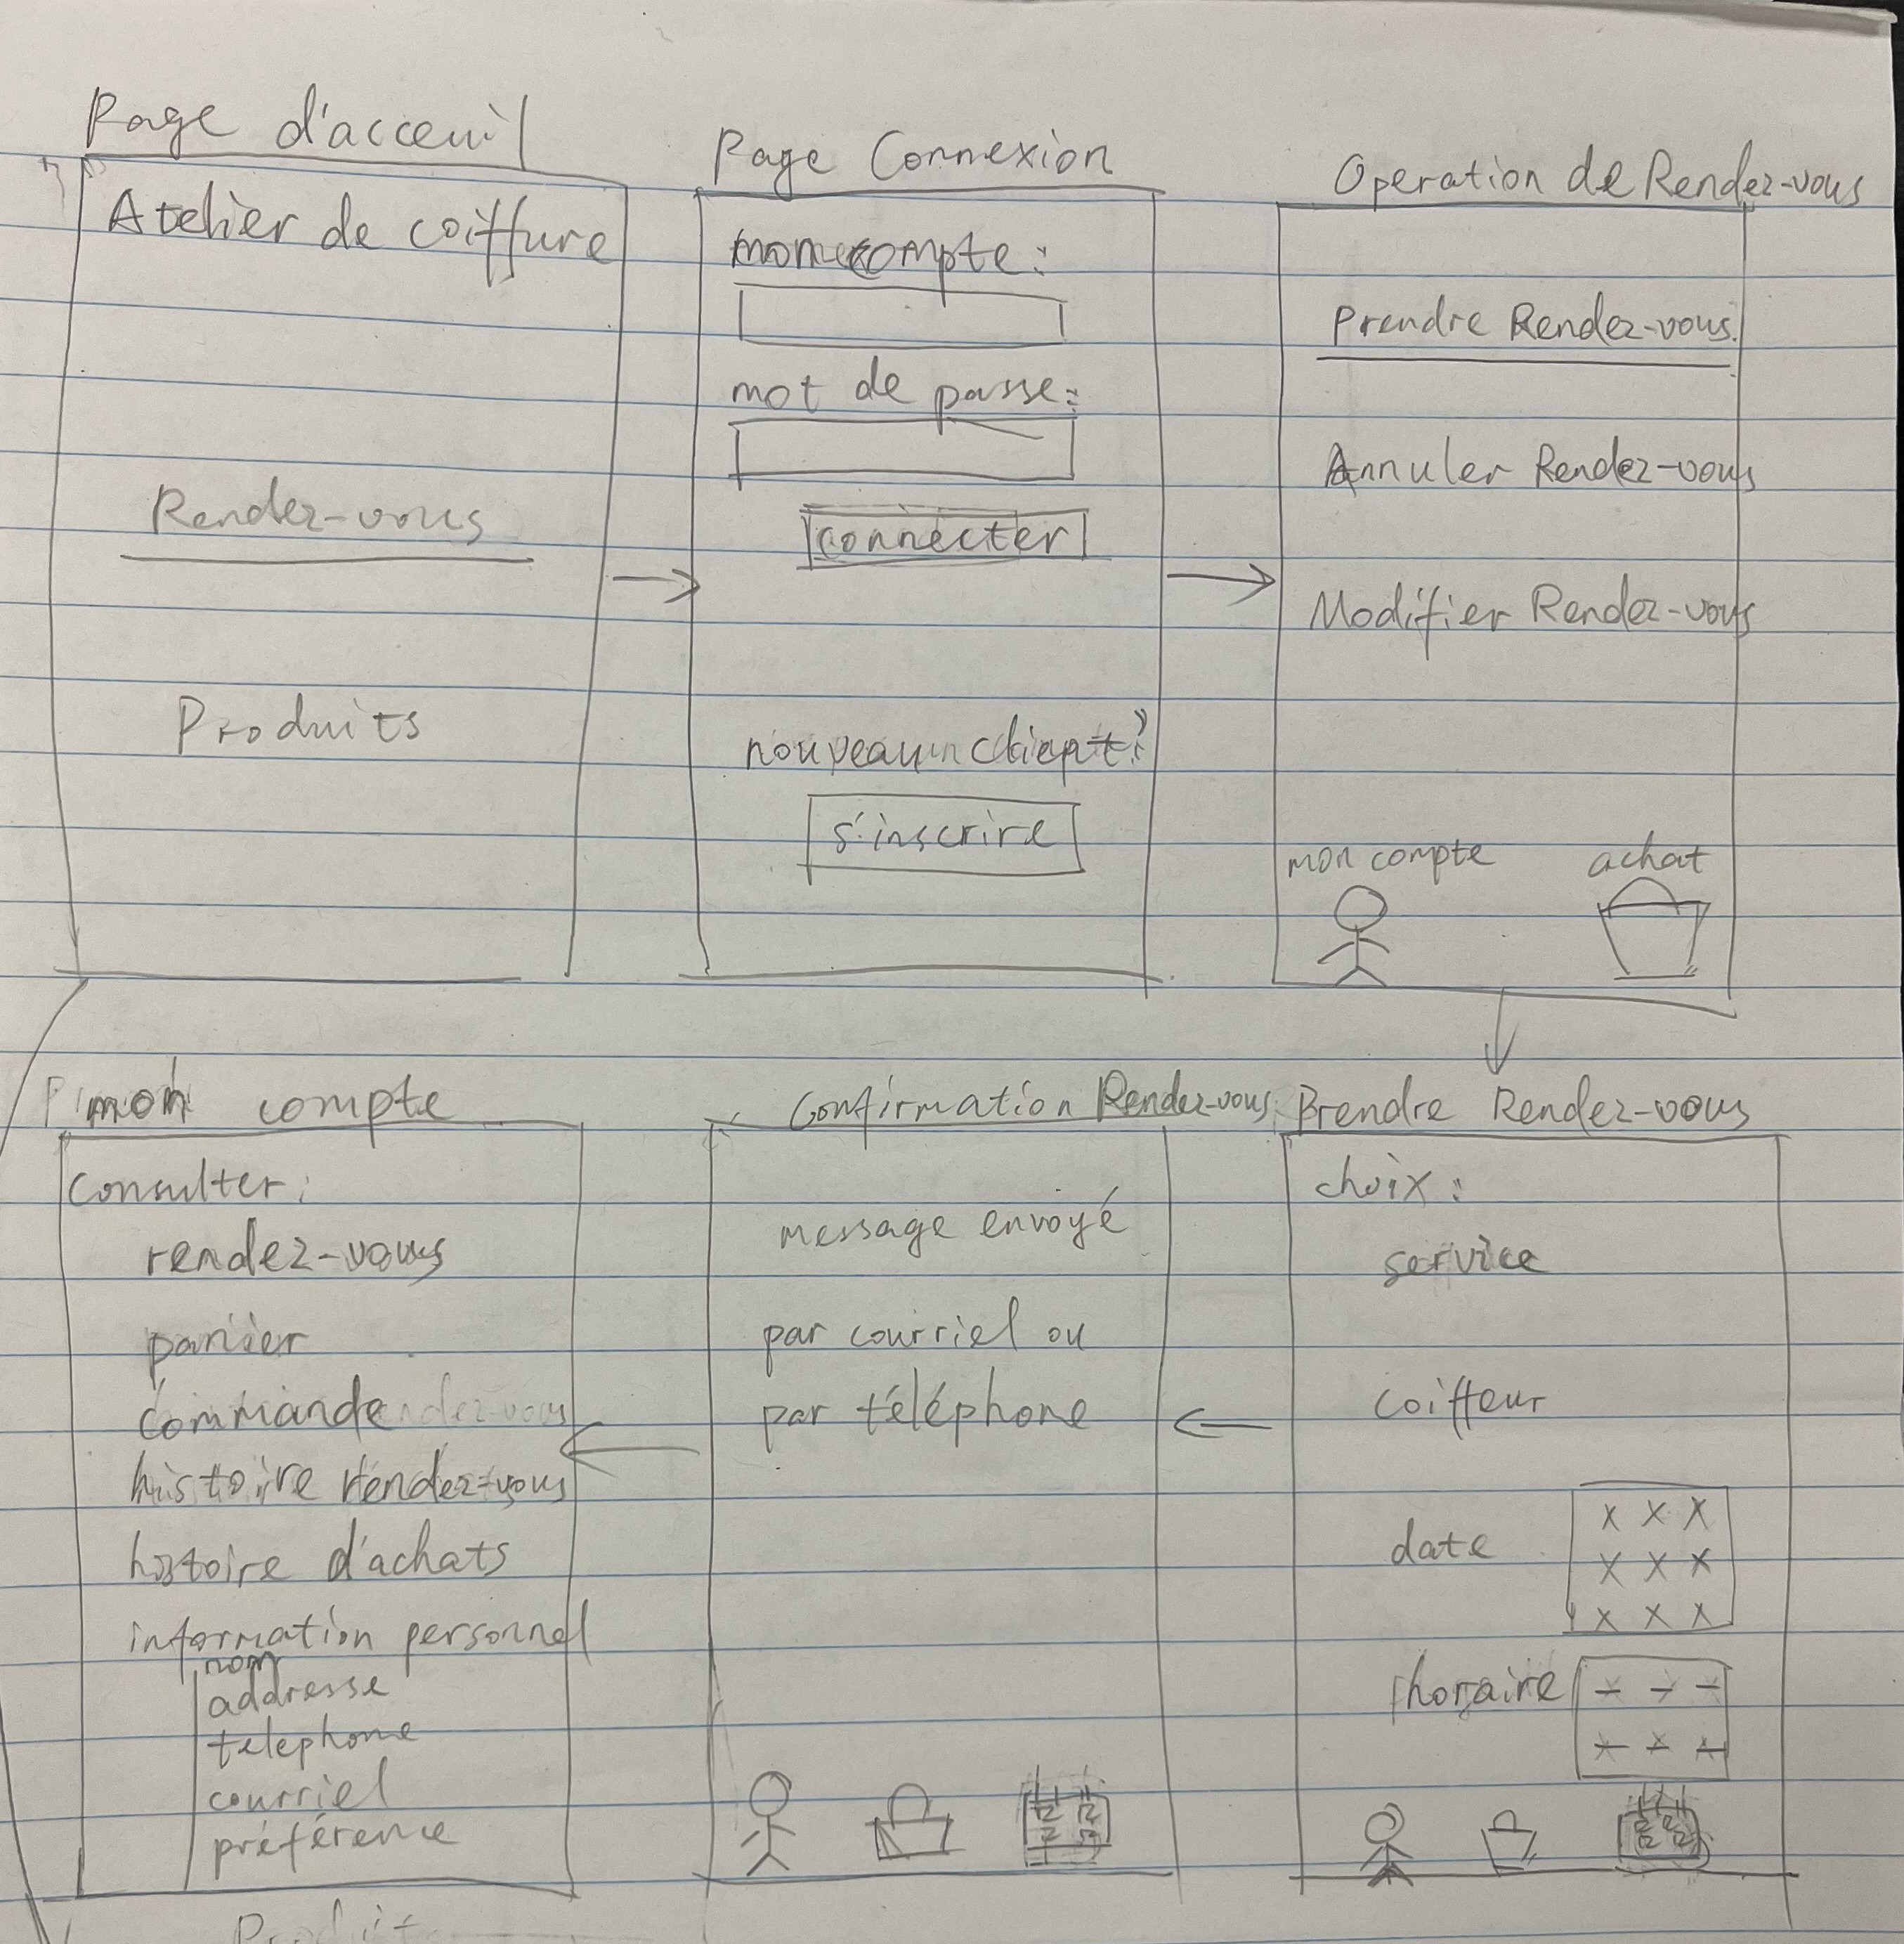 Page d'acceuil
Atelier de coiffure
Rendez-vous
Produits
Page Connexion
mon compte:
mot de passe:
connecter
nouveau client?
s'inscrire
Operation de Rendez-vous
Prendre Rendez-vous
Annuler Rendez-vous
Modifier Rendez-vous
mon compte
achat
mon compte
Consulter:
rendez-vous
panier
commande
histoire rendez-vous
histoire d'achats
information personnel
nom
addresse
telephone
courriel
préférence
Confirmation Rendez-vous
message envoyé
par courriel ou
par téléphone
Prendre Rendez-vous
choix:
service
coiffeur
date
x x x
x x x
x x x
horaire